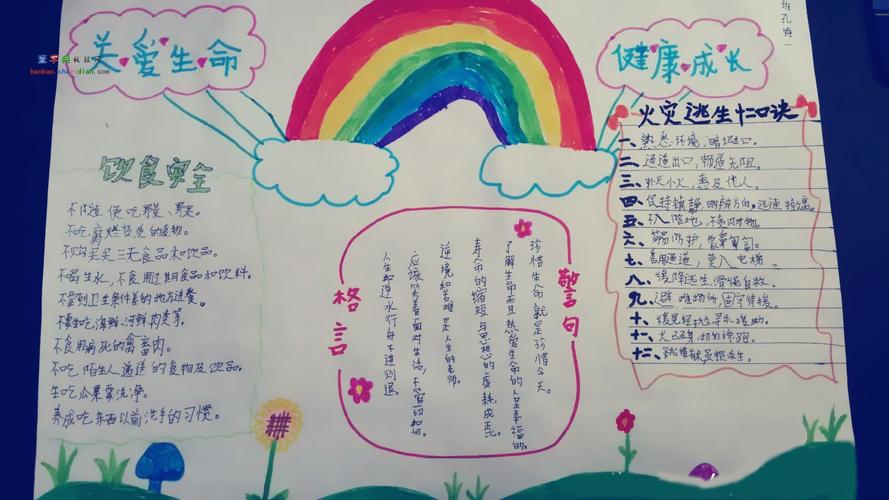 关爱生命
健康成长
饮食安全
不随便吃野菜、野果。
不吃腐烂变质的食物。
不购买三无食品和饮品。
不喝生水，不食用过期食品和饮料。
不到卫生条件差的地方进餐。
不食用病死的禽畜肉。
不吃陌生人递送的食物及饮品。
生吃瓜果要洗净。
养成吃东西以前洗手的习惯。
格言
警句
珍惜生命就是珍惜今天。
了解生命而且热爱生命的人是幸福的。
寿命的缩短与思想的虚耗成正比。
逆境和苦难是人生的老师。
应该笑着面对生活，不管一切如何。
人生如逆水行舟不进则退。
火灾逃生十二口诀
一、熟悉环境，暗记出口。
二、通道出口，畅通无阻。
三、扑灭小火，惠及他人。
四、保持镇静，明辨方向，迅速
五、不入险地，不贪财物。
六、
七、善用通道，莫入电梯。
八、缓降逃生，滑绳自救。
九、避难场所，固守待援。
十、缓晃轻抛，寻求援助。
十一、火已及身，切勿惊跑。
十二、跳楼
banbao.chazidian.com